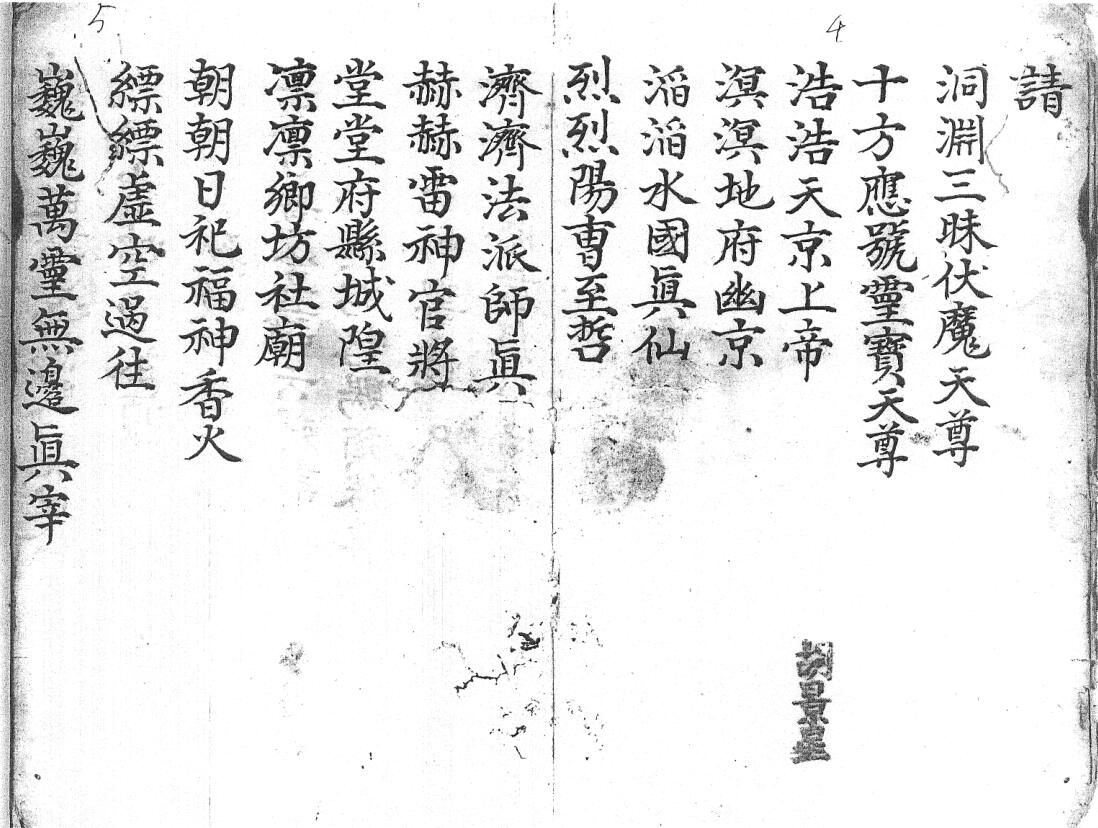 4
請
洞淵三昧伏魔天尊
十方應號靈寶天尊
浩浩天京上帝
溟溟地府幽京
滔滔水國眞仙
烈烈陽曹至哲
5
濟濟法派師眞
赫赫雷神官將
堂堂府縣城隍
凛凛鄉坊社廟
朝朝日祀福神香火
縹縹虛空過往
巍巍萬靈無邊眞宰
胡景星